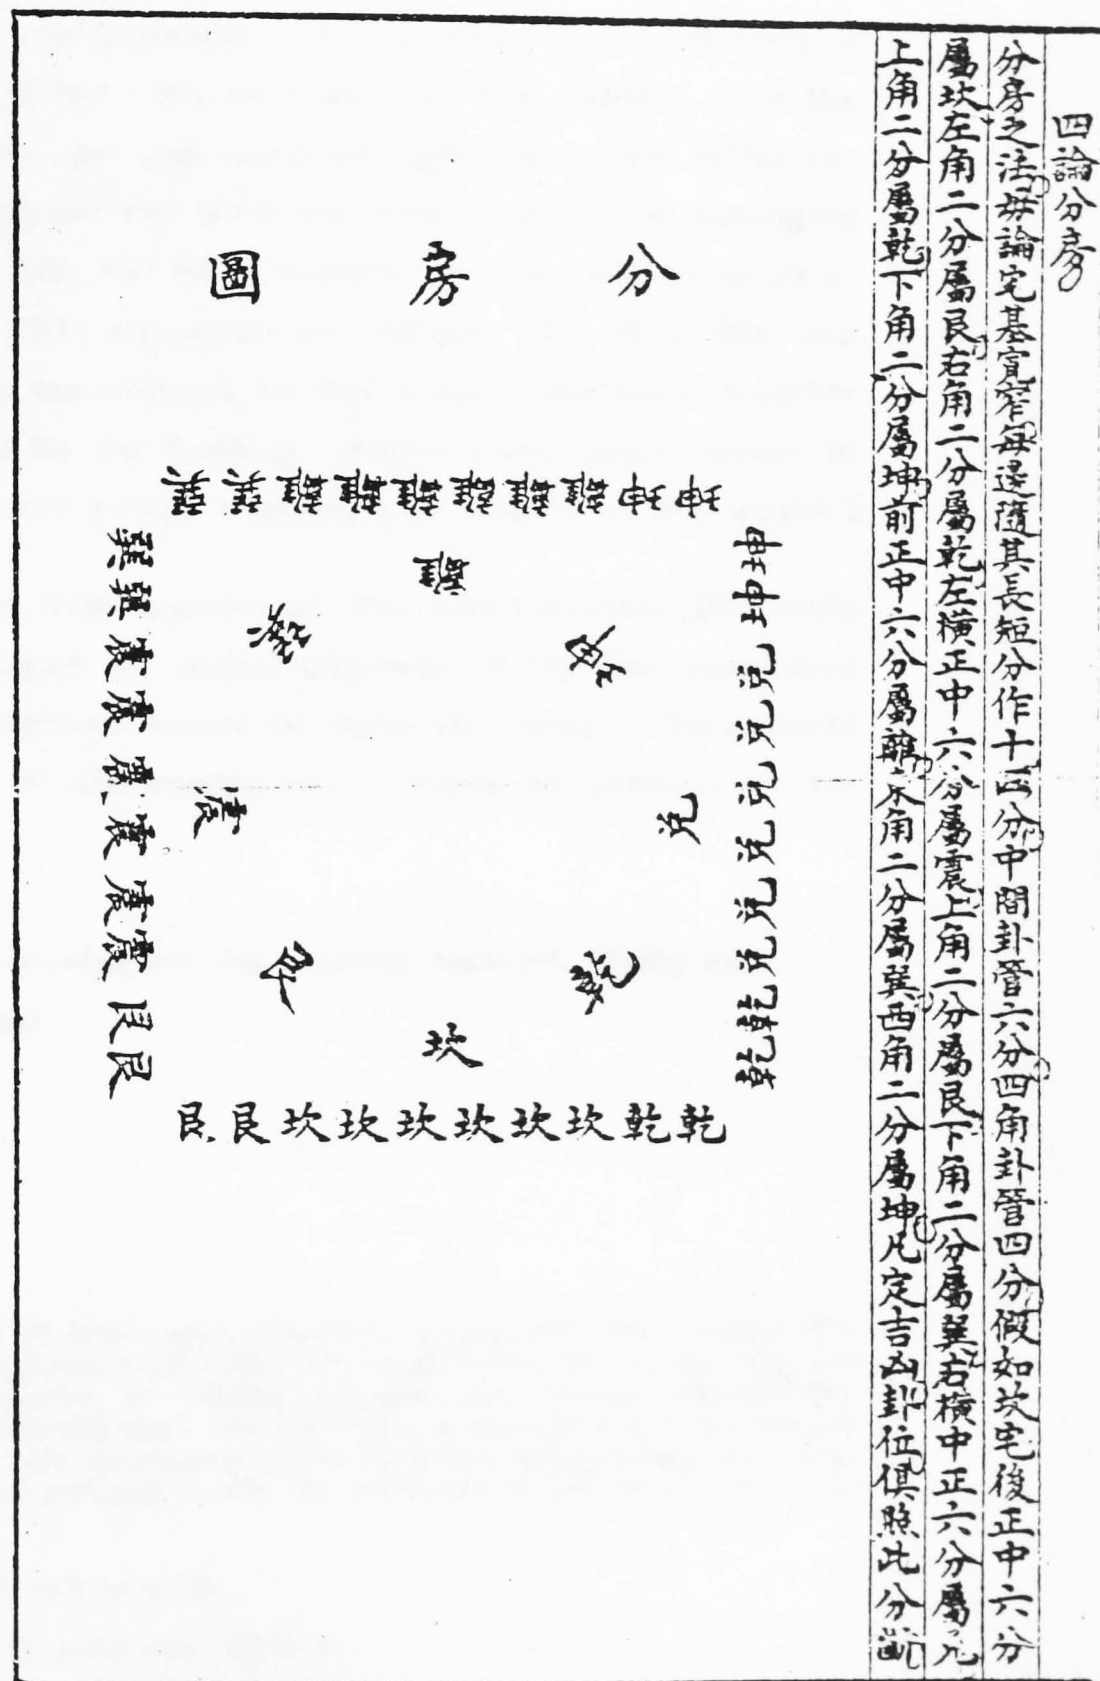 四論分房
分房之法毋論宅基寬窄每邊隨其長短分作十四分中間卦管六分四角卦管四分假如坎宅後正中六分
屬坎左角二分屬艮右角二分屬乾左橫正中六分屬震上角二分屬艮下角二分屬巽右橫中正六分屬兌
上角二分屬乾下角二分屬坤前正中六分屬離東角二分屬巽西角二分屬坤凡定吉凶卦位俱照此分斷
分房圖
坤坤離離離離離離巽巽
離
坤
巽
兌
震
乾
艮
坎
坤坤兌兌兌兌兌兌乾乾
巽巽震震震震震震艮艮
乾乾坎坎坎坎坎坎艮艮